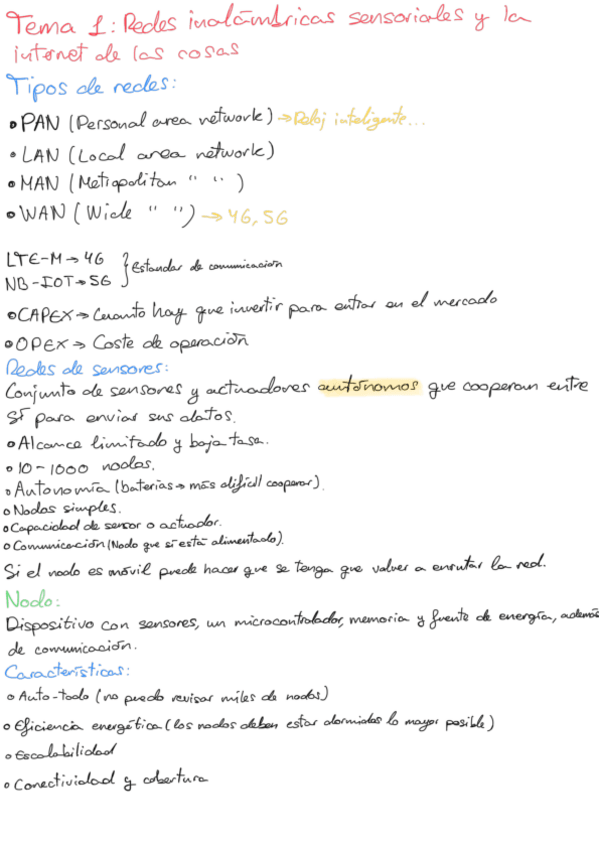 Tema 1: Redes inalámbricas sensoriales y la
internet de las cosas
Tipos de redes:
• PAN (Personal area network) → Reloj inteligente...
• LAN (Local area network)
• MAN (Metropolitan " " )
• WAN (Wide " ") → 4G, 5G
LTE-M → 4G } Estandar de comunicación
NB-IOT → 5G
• CAPEX → Cuanto hay que invertir para entrar en el mercado
• OPEX → Coste de operación
Redes de sensores:
Conjunto de sensores y actuadores autónomos que cooperan entre
sí para enviar sus datos.
• Alcance limitado y baja tasa.
• 10-1000 nodos.
• Autonomía (baterías → más difícil cooperar).
• Nodos simples.
• Capacidad de sensor o actuador.
• Comunicación (Nodo que sí está alimentado).
Si el nodo es móvil puede hacer que se tenga que volver a enrutar la red.
Nodo:
Dispositivo con sensores, un microcontrolador, memoria y fuente de energía, además
de comunicación.
Características:
• Auto-todo (no puedo revisar miles de nodos)
• Eficiencia energética (los nodos deben estar dormidos lo mayor posible)
• Escalabilidad
• Conectividad y cobertura